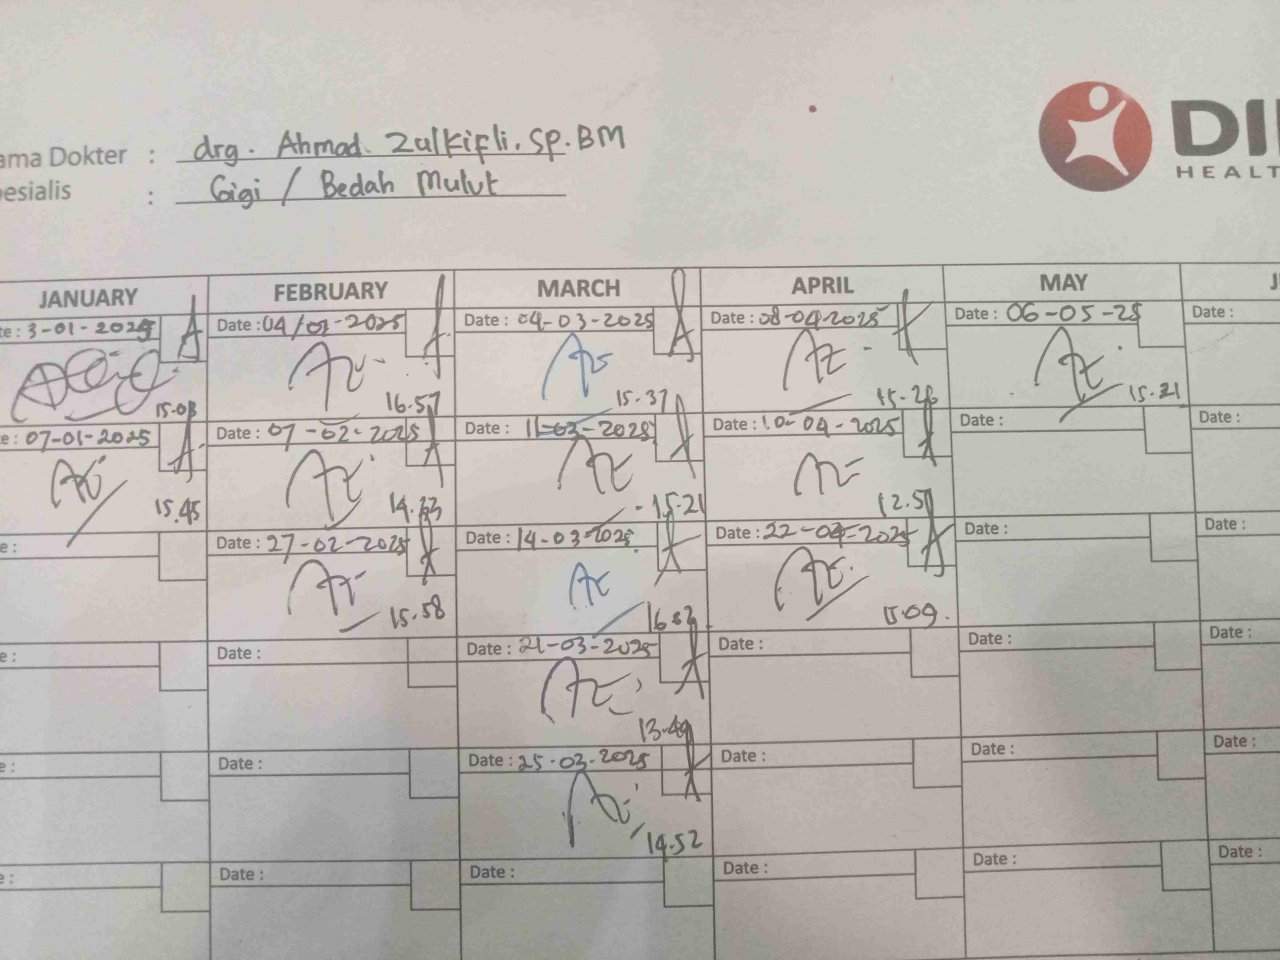 ama Dokter : drg. Ahmad. Zulkifli. Sp.BM
esialis : Gigi / Bedah Mulut
DI
HEALT
JANUARY FEBRUARY MARCH APRIL MAY J
te: 3-01-2025 Date: 04/02-2025 Date: 04-03-2025 Date: 08-04-2025 Date: 06-05-25 Date:
15.03 16.57 15.37 15.26 15.21
e: 07-01-2025 Date: 07-02-2025 Date: 11-03-2025 Date: 10-04-2025 Date: Date:
15.45 14.33 15.21 12.51
e: Date: 27-02-2025 Date: 14-03-2025 Date: 22-04-2025 Date: Date:
15.58 15.09.
e: Date: Date: 21-03-2025 Date: Date: Date:
13.49
e: Date: Date: 25-03-2025 Date: Date: Date:
14.52
e: Date: Date: Date: Date: Date: